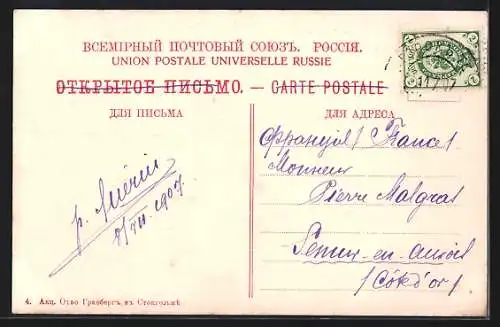 ВСЕМІРНЫЙ ПОЧТОВЫЙ СОЮЗЪ. РОССІЯ.
UNION POSTALE UNIVERSELLE RUSSIE
ОТКРЫТОЕ ПИСЬМО. — CARTE POSTALE
ДЛЯ ПИСЬМА
ДЛЯ АДРЕСА
France
Monsieur
Pierre Malgras
Semur-en-Auxois
(Côte d'or)
VII 1907
4. Акц. О-во Гранбергъ, въ Стокгольмѣ